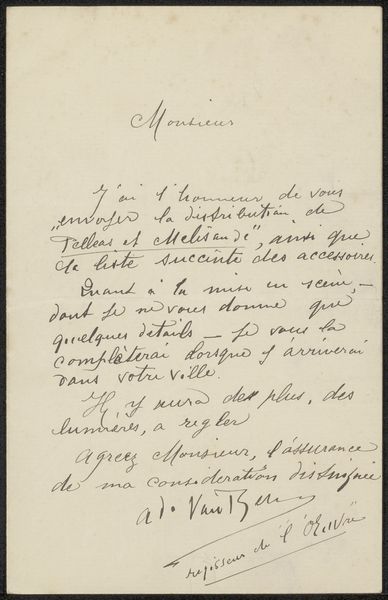 Monsieur
J'ai l'honneur de vous
envoyer la distribution de
"Pelleas et Melisande", ainsi que
la liste succinte des accessoires
Quant à la mise en scène, –
dont je ne vous donne que
quelques détails – je vous la
complèterai lorsque j'arriverai
dans votre ville.
Il y aura de plus, des
lumières, a regler
Agreez Monsieur, l'assurance
de ma consideration distinguée
ad. Van Ber
regisseur de "l'Oeuvre"